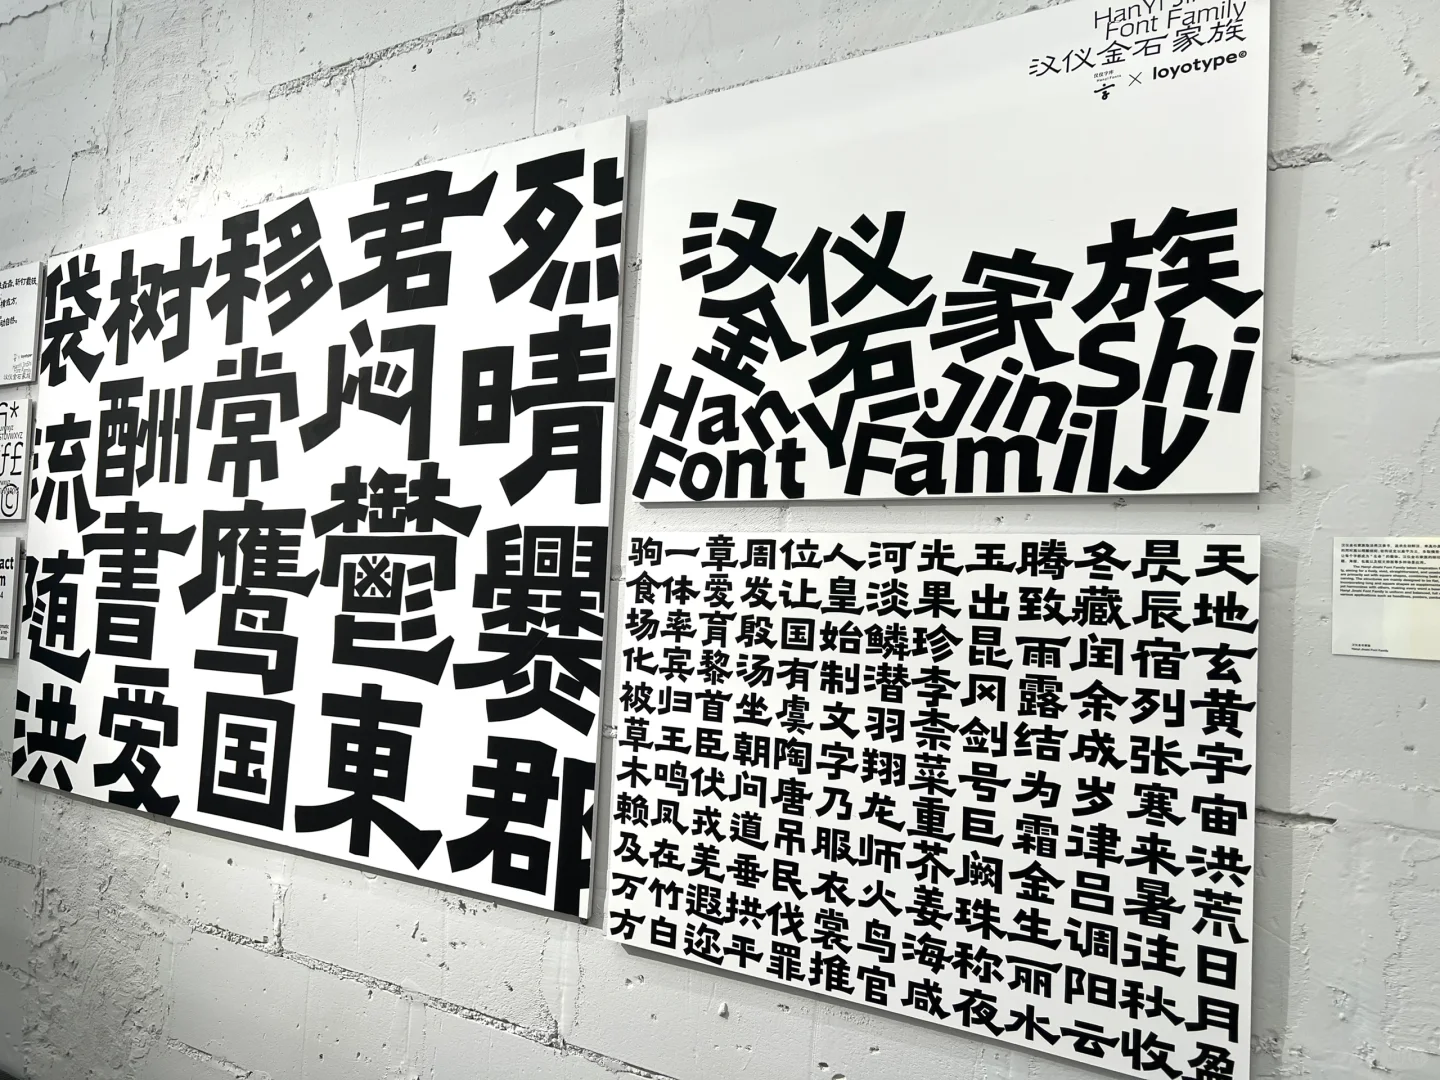 袋树移君烈
流酬常闷晴
随書鹰鬱爨
洪爱国東郡
Font Family
汉仪金石家族
汉仪字库
× loyotype©
汉仪家族
金石
HanYi JinShi
Font Family
天地玄黄宇宙洪荒日月盈
昃辰宿列张寒来暑往秋收
冬藏闰余成岁律吕调阳云
腾致雨露结为霜金生丽水
玉出昆冈剑号巨阙珠称夜
光果珍李柰菜重芥姜海咸
河淡鳞潜羽翔龙师火鸟官
人皇始制文字乃服衣裳推
位让国有虞陶唐吊民伐罪
周发殷汤坐朝问道垂拱平
章爱育黎首臣伏戎羌遐迩
一体率宾归王鸣凤在竹白
驹食场化被草木赖及万方